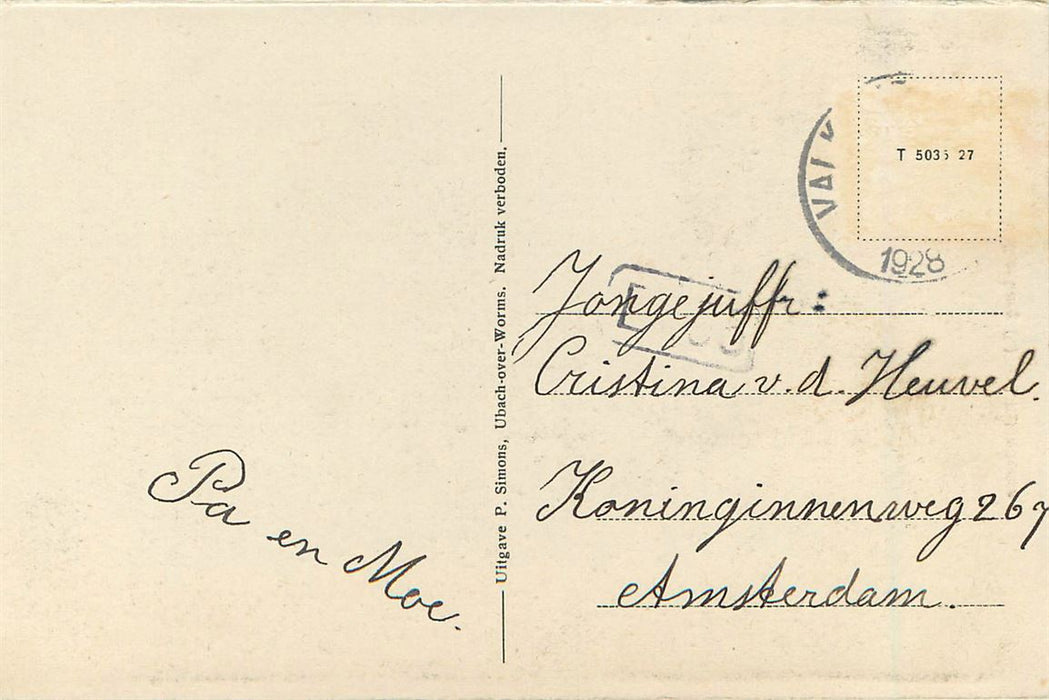 Pa
en Moe.
Uitgave P. Simons, Ubach-over-Worms. Nadruk verboden.
VALK
1928
T 5035 27
Jongejuffr:
Cristina v. d. Heuvel.
Koninginnenweg 267
Amsterdam.